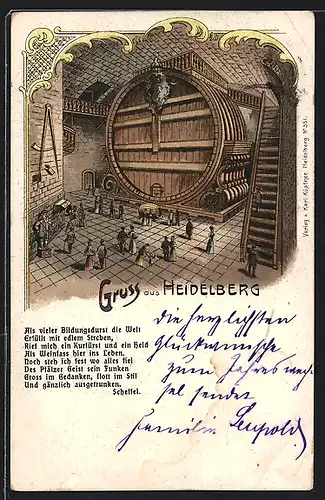 Gruss aus HEIDELBERG
Verlag v. Karl Küstner, Heidelberg No. 351.
Als vieler Bildungsdurst die Welt
Erfüllt mit edlem Streben,
Rief mich ein Kurfürst und ein Held
Als Weinfass hier ins Leben.
Noch steh ich fest wo alles fiel
Des Pfälzer Geist sein Funken
Gross im Gedanken, flott im Stil
Und gänzlich ausgetrunken.
Scheffel.
die herzlichsten
Glückwünsche
zum Jahreswech
sel sendet
Familie Leupold